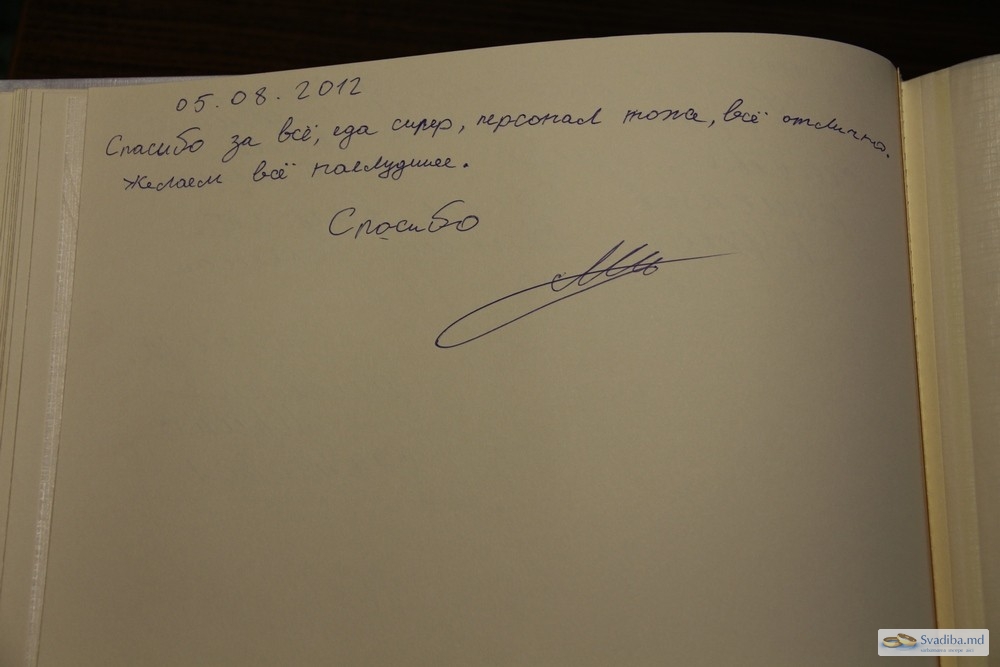 05.08.2012
Спасибо за всё, еда супер, персонал тоже, всё отлично.
Желаем всё наелудшее.
Спасибо
Svadiba.md